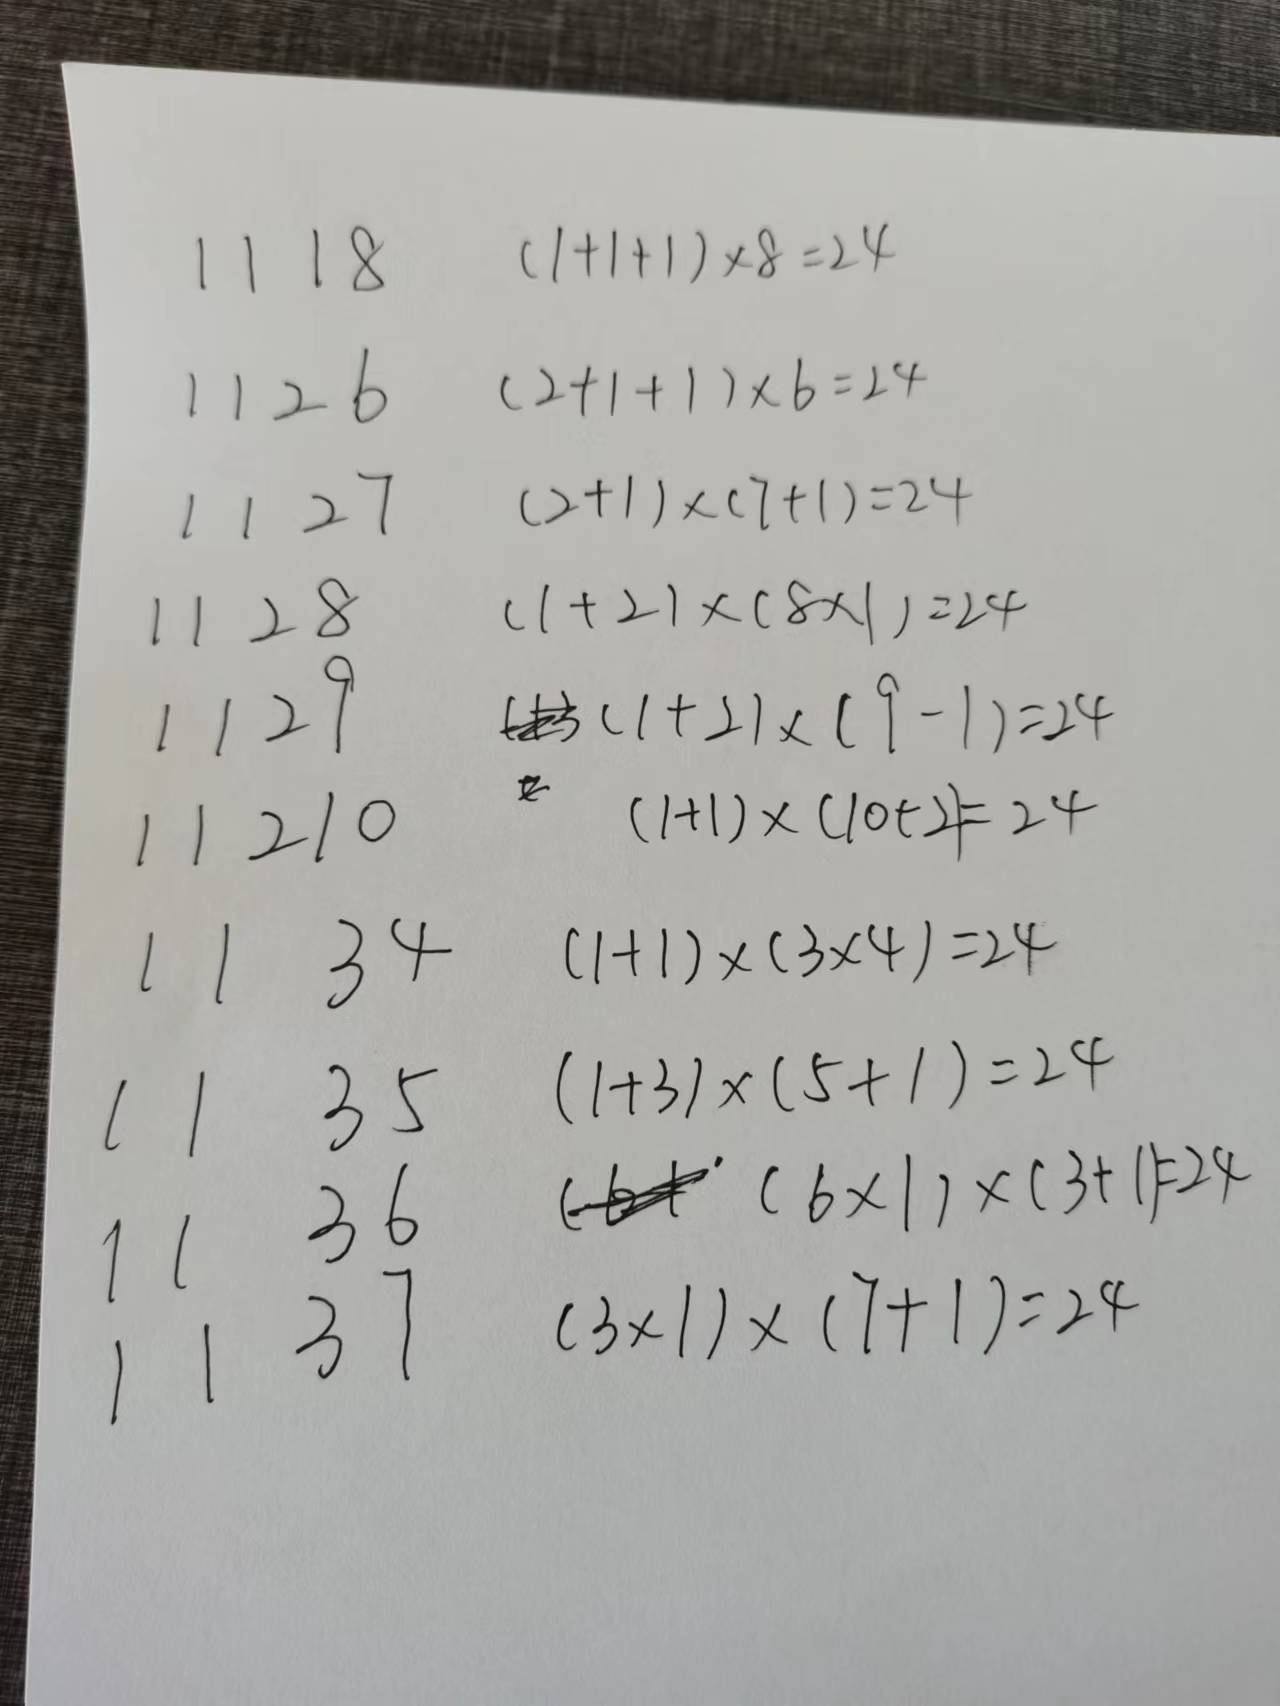 1 1 1 8 (1+1+1)×8=24
1 1 2 6 (2+1+1)×6=24
1 1 2 7 (2+1)×(7+1)=24
1 1 2 8 (1+2)×(8×1)=24
1 1 2 9 (1+2)×(9-1)=24
1 1 2 10 (1+1)×(10+2)=24
1 1 3 4 (1+1)×(3×4)=24
1 1 3 5 (1+3)×(5+1)=24
1 1 3 6 (6×1)×(3+1)=24
1 1 3 7 (3×1)×(7+1)=24